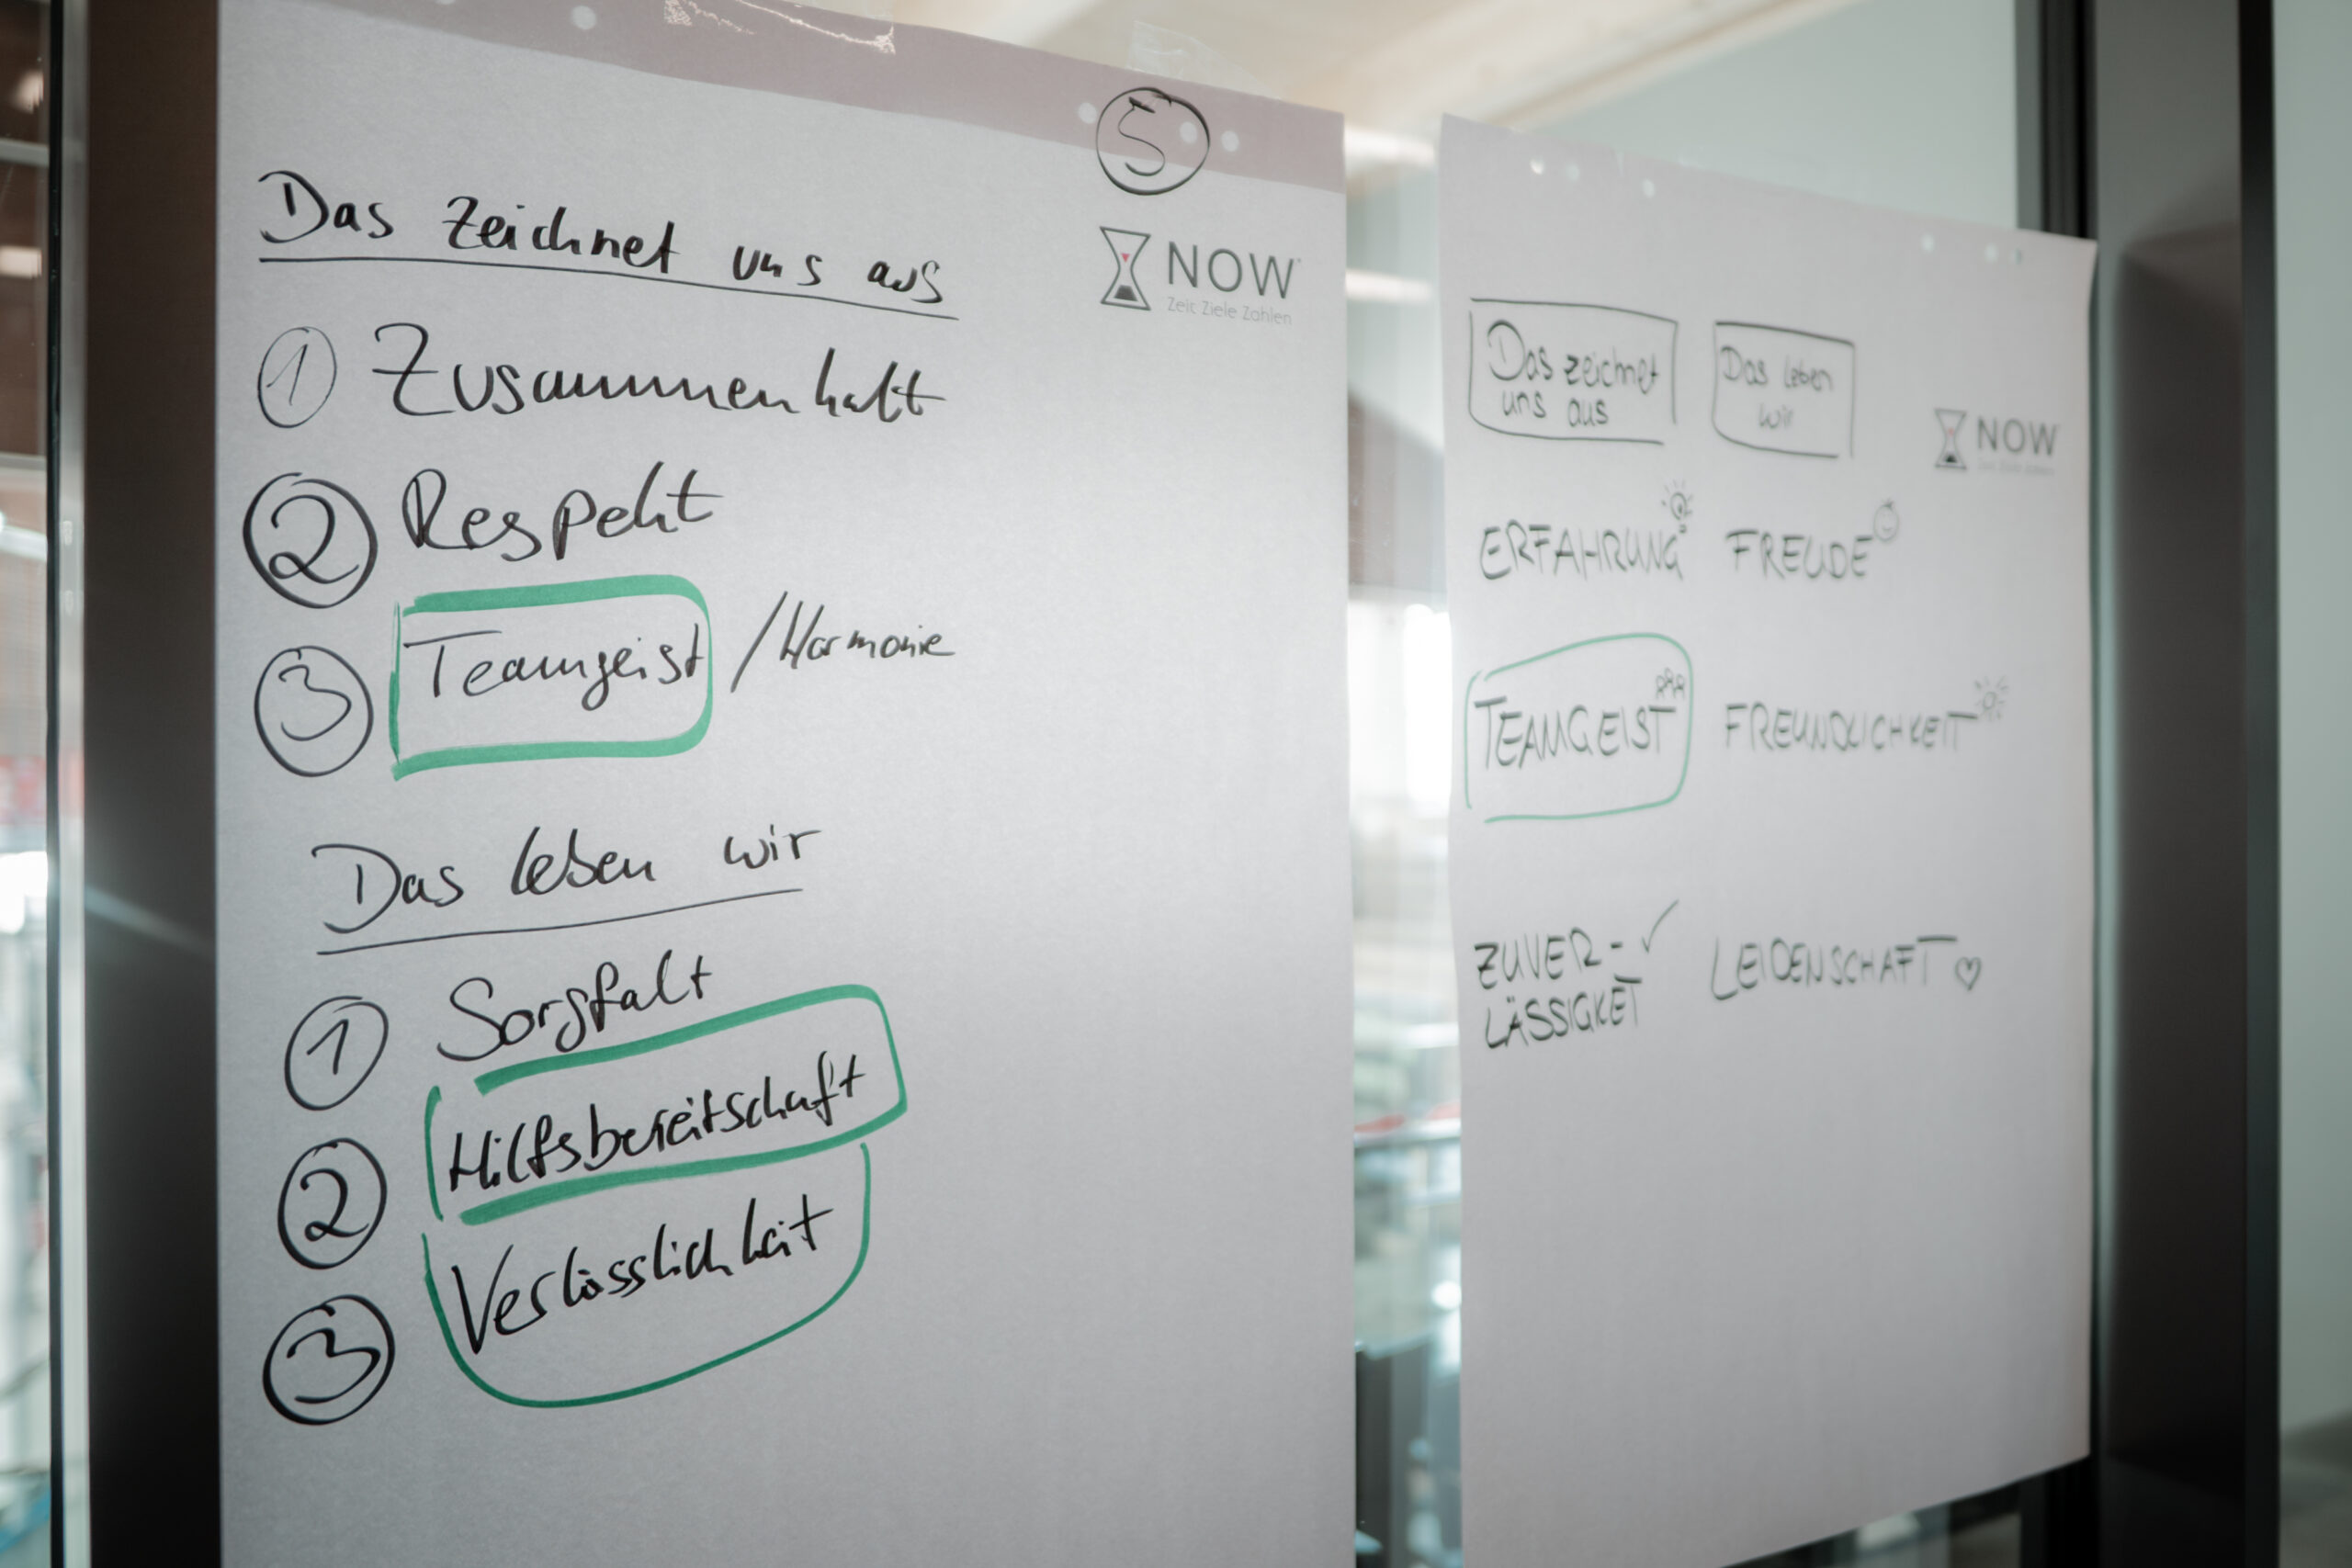 5
NOW
Zeit Ziele Zahlen
Das zeichnet uns aus
1 Zusammenhalt
2 Respekt
3 Teamgeist / Harmonie
Das leben wir
1 Sorgfalt
2 Hilfsbereitschaft
3 Verlässlichkeit
Das zeichnet
uns aus
Das leben
wir
NOW
Zeit Ziele Zahlen
ERFAHRUNG
FREUDE
TEAMGEIST
FREUNDLICHKEIT
ZUVER-
LÄSSIGKET
LEIDENSCHAFT